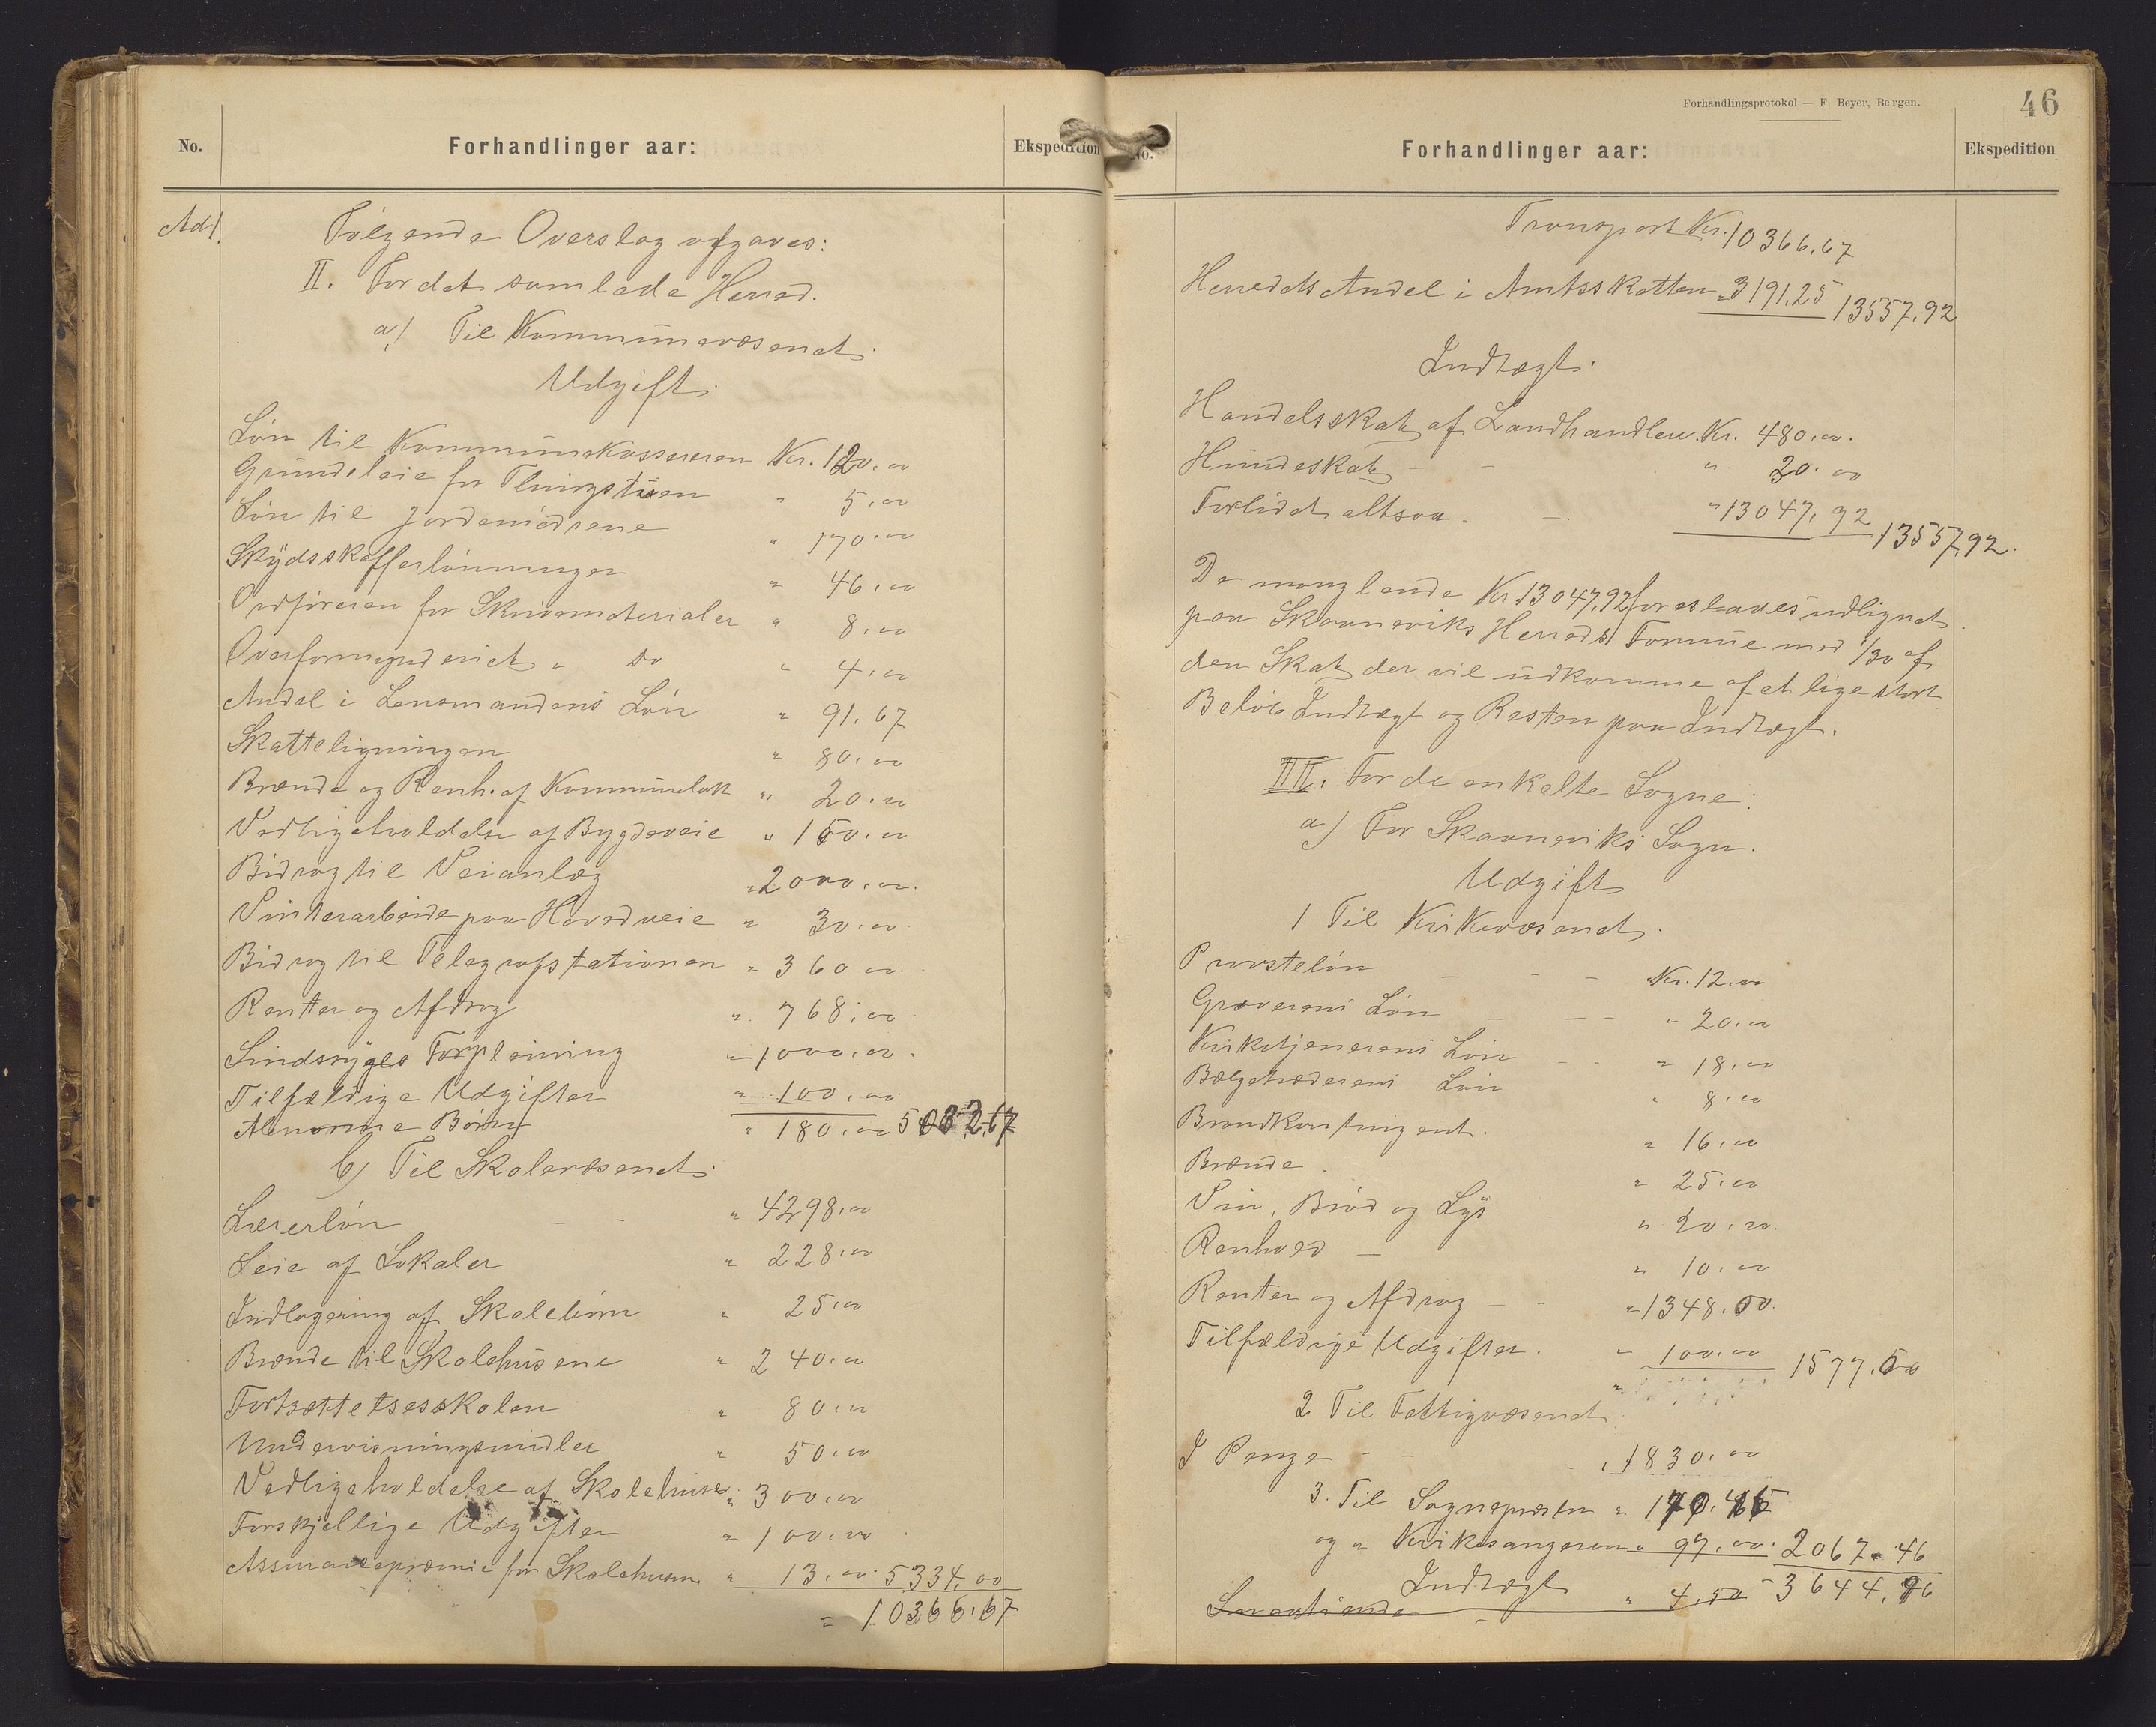 No.
Forhandlinger aar:
Ekspedition
Ad 1.
Følgende Overslag opgaves:
II. For det samlede Herred.
a) Til Kommunevæsenet.
Udgift.
Løn til Kommunekassereren Kr. 120.00
Grundeleie for Thingstuen " 5.00
Løn til Jordemødrene " 170.00
Skydsskafferlønninger " 46.00
Ordføreren for Skrivematerialer " 8.00
Overformynderiet " Do " 4.00
Andel i Lensmandens Løn " 91.67
Skatteligningen " 80.00
Brænde og Renh. af Kommunelok " 20.00
Vedligeholdelse af Bygdeveie " 150.00
Bidrag til Veianlæg " 2000.00.
Vinterarbeide paa Hovedveie " 30.00
Bidrag til Telegrafstationen " 360.00.
Renter og Afdrag " 768.00
Sindsyges Forpleining " 1000.00.
Tilfældige Udgifter " 100.00
Abnorme Børn " 180.00 5032.67
b) Til Skolevæsenet.
Lærerløn - - " 4298.00
Leie af Lokaler " 228.00
Indlogering af Skolebørn " 25.00
Brænde til Skolehusene " 240.00
Fortsættelsesskolen " 80.00
Undervisningsmidler " 50.00
Vedligeholdelse af Skolehuse " 300.00
Forskjellige Udgifter " 100.00
Assurancepræmie for Skolehusene " 13.00 5334.00
" 10366.67
Forhandlingsprotokol — F. Beyer, Bergen.
46
No.
Forhandlinger aar:
Ekspedition
Transport Kr. 10366.67
Herredets Andel i Amtsskatten " 3191.25 13557.92
Indtægt.
Handelsskat af Landhandlere. Kr. 480.00.
Hundeskat - - " 30.00
Forlidet altsaa. - " 13047.92 13557.92.
De manglende Kr. 13047,92 foreslaaes udlignet
paa Skaaneviks Herreds Formue med 1/30 af
den Skat der vil udkomme af et lige stort
Beløb Indtægt og Resten paa Indtægt.
III. For de enkelte Sogne:
a) For Skaaneviks Sogn.
Udgift
1 Til Kirkevæsenet.
Provsteløn - - - Kr. 12.00
Graverens Løn - - - " 20.00
Kirketjenerens Løn - - " 18.00
Bælgetræderens Løn " 8.00
Brandkontingent. " 16.00
Brænde. " 25.00
Vin, Brød og Lys - " 20.00.
Renhold - " 10.00
Renter og Afdrag - - " 1348.50.
Tilfældige Udgifter. " 100.00 1577.50
2 Til Fattigvæsenet
I Penge - - - " 1830.00
3. Til Sognepresten " 140.46
og " Kirkesangeren " 97.00. 2067.46
Indtægt 3644.96
Smaatiende - " 4.50